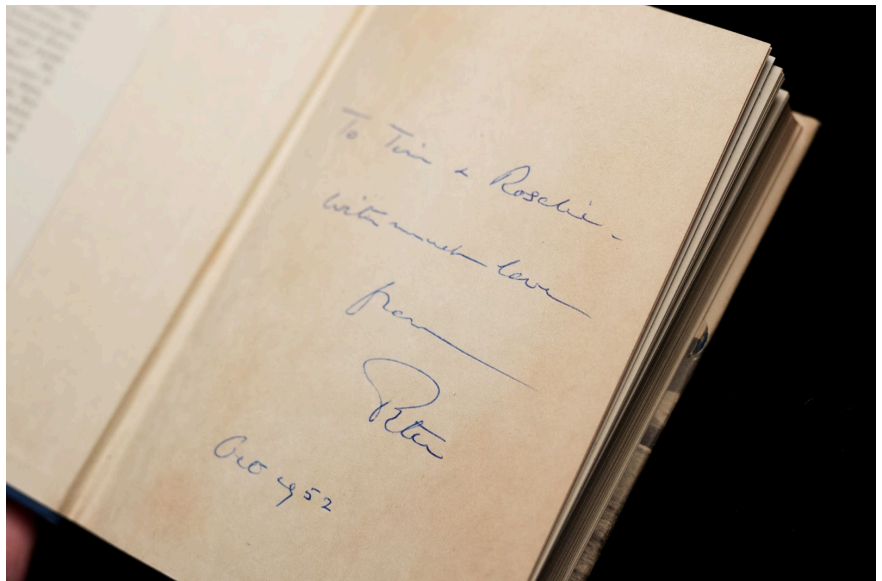 To Tim & Rosalie -
with much love
from
Peter
Oct 1952